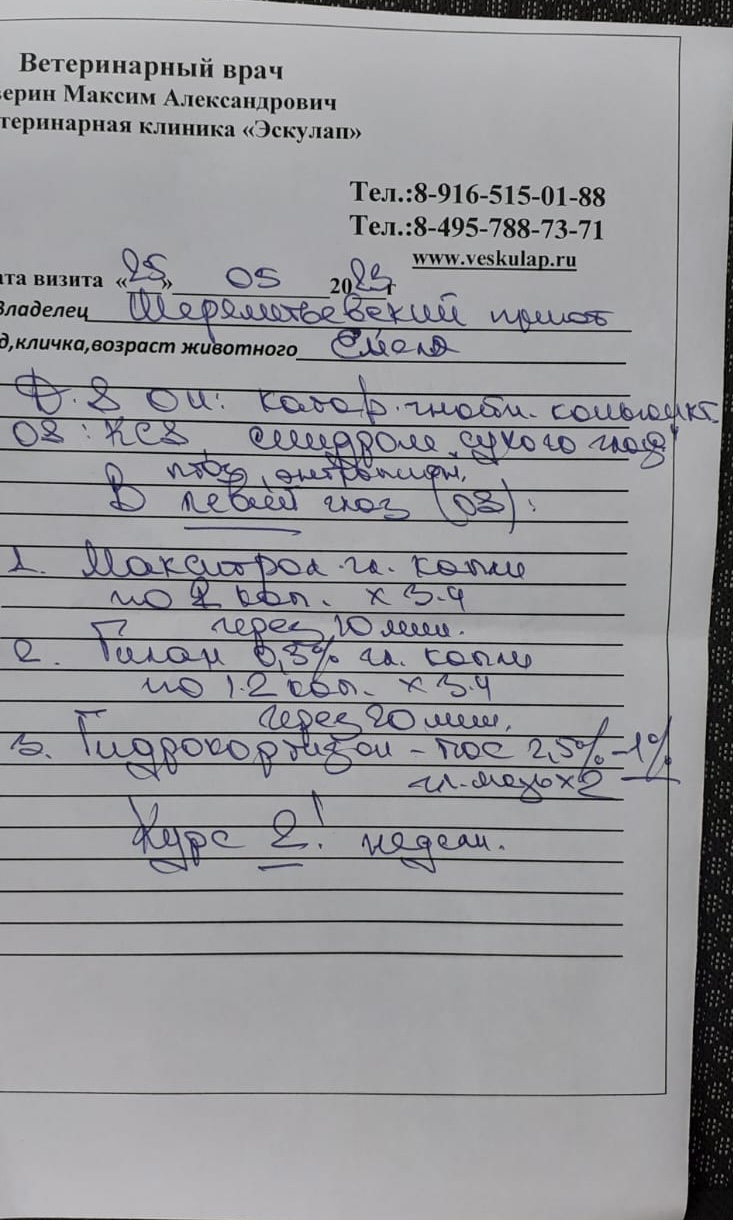 Ветеринарный врач
ерин Максим Александрович
теринарная клиника «Эскулап»
Тел.:8-916-515-01-88
Тел.:8-495-788-73-71
www.veskulap.ru
ата визита «25» 05 2023г
Владелец Шереметьевский приют
д,кличка,возраст животного Емеля
D.S OU: катар. гнойн. конъюнкт.
OS: KCS, синдром "сухого глаза"
птоз, энтропион.
В левый глаз (OS):
1. Макситрол гл. капли
по 2 кап. х 3-4
через 10 мин.
2. Гилан 0,3% гл. капли
по 1-2 кап. х 3-4
через 20 мин.
3. Гидрокортизон-пос 2,5%-1%
гл. мазь х 2
Курс 2! недели.